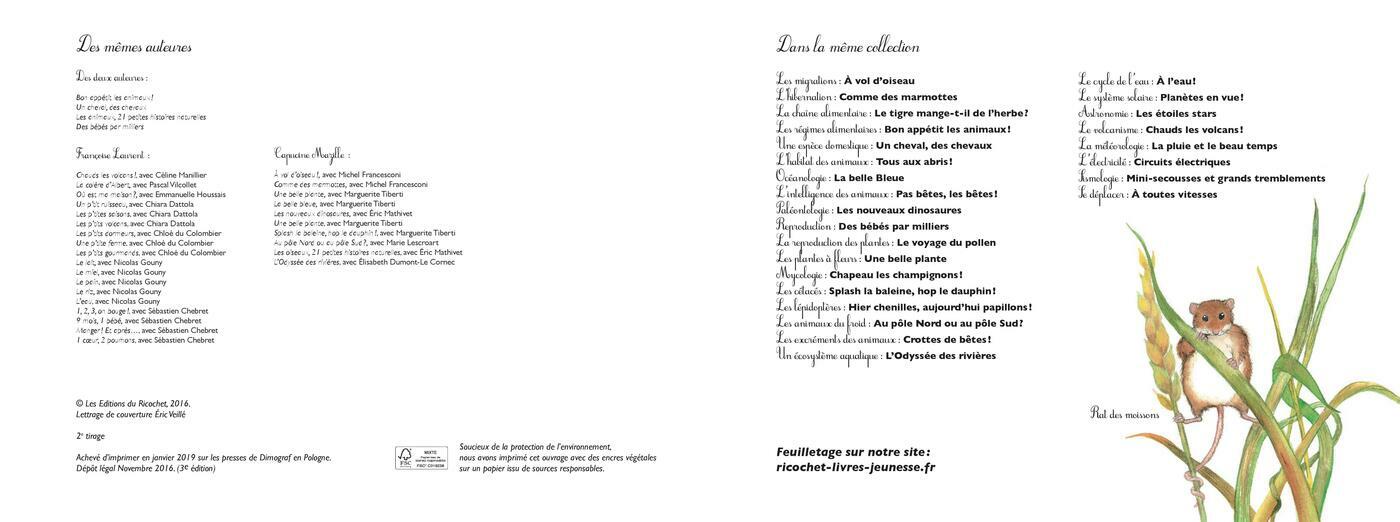 Des mêmes auteures
Des deux auteures :
Bon appétit les animaux !
Un cheval, des chevaux
Les animaux, 21 petites histoires naturelles
Des bébés par milliers
Françoise Laurent :
Chauds les volcans !, avec Céline Manillier
La colère d'Albert, avec Pascal Vilcollet
Où est ma maison ?, avec Emmanuelle Houssais
Un p'tit ruisseau, avec Chiara Dattola
Les p'tites saisons, avec Chiara Dattola
Les p'tits volcans, avec Chiara Dattola
Les p'tits dormeurs, avec Chloé du Colombier
Une p'tite ferme, avec Chloé du Colombier
Les p'tits gourmands, avec Chloé du Colombier
Le lait, avec Nicolas Gouny
Le miel, avec Nicolas Gouny
Le pain, avec Nicolas Gouny
Le riz, avec Nicolas Gouny
L'eau, avec Nicolas Gouny
1, 2, 3, on bouge !, avec Sébastien Chebret
9 mois, 1 bébé, avec Sébastien Chebret
Manger ! Et après…, avec Sébastien Chebret
1 cœur, 2 poumons, avec Sébastien Chebret
Capucine Mazille :
À vol d'oiseau !, avec Michel Francesconi
Comme des marmottes, avec Michel Francesconi
Une belle plante, avec Marguerite Tiberti
La belle bleue, avec Marguerite Tiberti
Les nouveaux dinosaures, avec Éric Mathivet
Une belle plante, avec Marguerite Tiberti
Splash la baleine, hop le dauphin !, avec Marguerite Tiberti
Au pôle Nord ou au pôle Sud ?, avec Marie Lescroart
Les oiseaux, 21 petites histoires naturelles, avec Éric Mathivet
L'Odyssée des rivières, avec Élisabeth Dumont-Le Cornec
© Les Editions du Ricochet, 2016.
Lettrage de couverture Éric Veillé
2e tirage
Achevé d'imprimer en janvier 2019 sur les presses de Dimograf en Pologne.
Dépôt légal Novembre 2016. (3e édition)
FSC
MIXTE
Soucieux de la protection de l'environnement,
nous avons imprimé cet ouvrage avec des encres végétales
sur un papier issu de sources responsables.
Dans la même collection
Les migrations : À vol d'oiseau
L'hibernation : Comme des marmottes
La chaîne alimentaire : Le tigre mange-t-il de l'herbe ?
Les régimes alimentaires : Bon appétit les animaux !
Une espèce domestique : Un cheval, des chevaux
L'habitat des animaux : Tous aux abris !
Océanologie : La belle Bleue
L'intelligence des animaux : Pas bêtes, les bêtes !
Paléontologie : Les nouveaux dinosaures
Reproduction : Des bébés par milliers
La reproduction des plantes : Le voyage du pollen
Les plantes à fleurs : Une belle plante
Mycologie : Chapeau les champignons !
Les cétacés : Splash la baleine, hop le dauphin !
Les lépidoptères : Hier chenilles, aujourd'hui papillons !
Les animaux du froid : Au pôle Nord ou au pôle Sud ?
Les excréments des animaux : Crottes de bêtes !
Un écosystème aquatique : L'Odyssée des rivières
Le cycle de l'eau : À l'eau !
Le système solaire : Planètes en vue !
Astronomie : Les étoiles stars
Le volcanisme : Chauds les volcans !
La météorologie : La pluie et le beau temps
L'électricité : Circuits électriques
Sismologie : Mini-secousses et grands tremblements
Se déplacer : À toutes vitesses
Rat des moissons
Feuilletage sur notre site :
ricochet-livres-jeunesse.fr